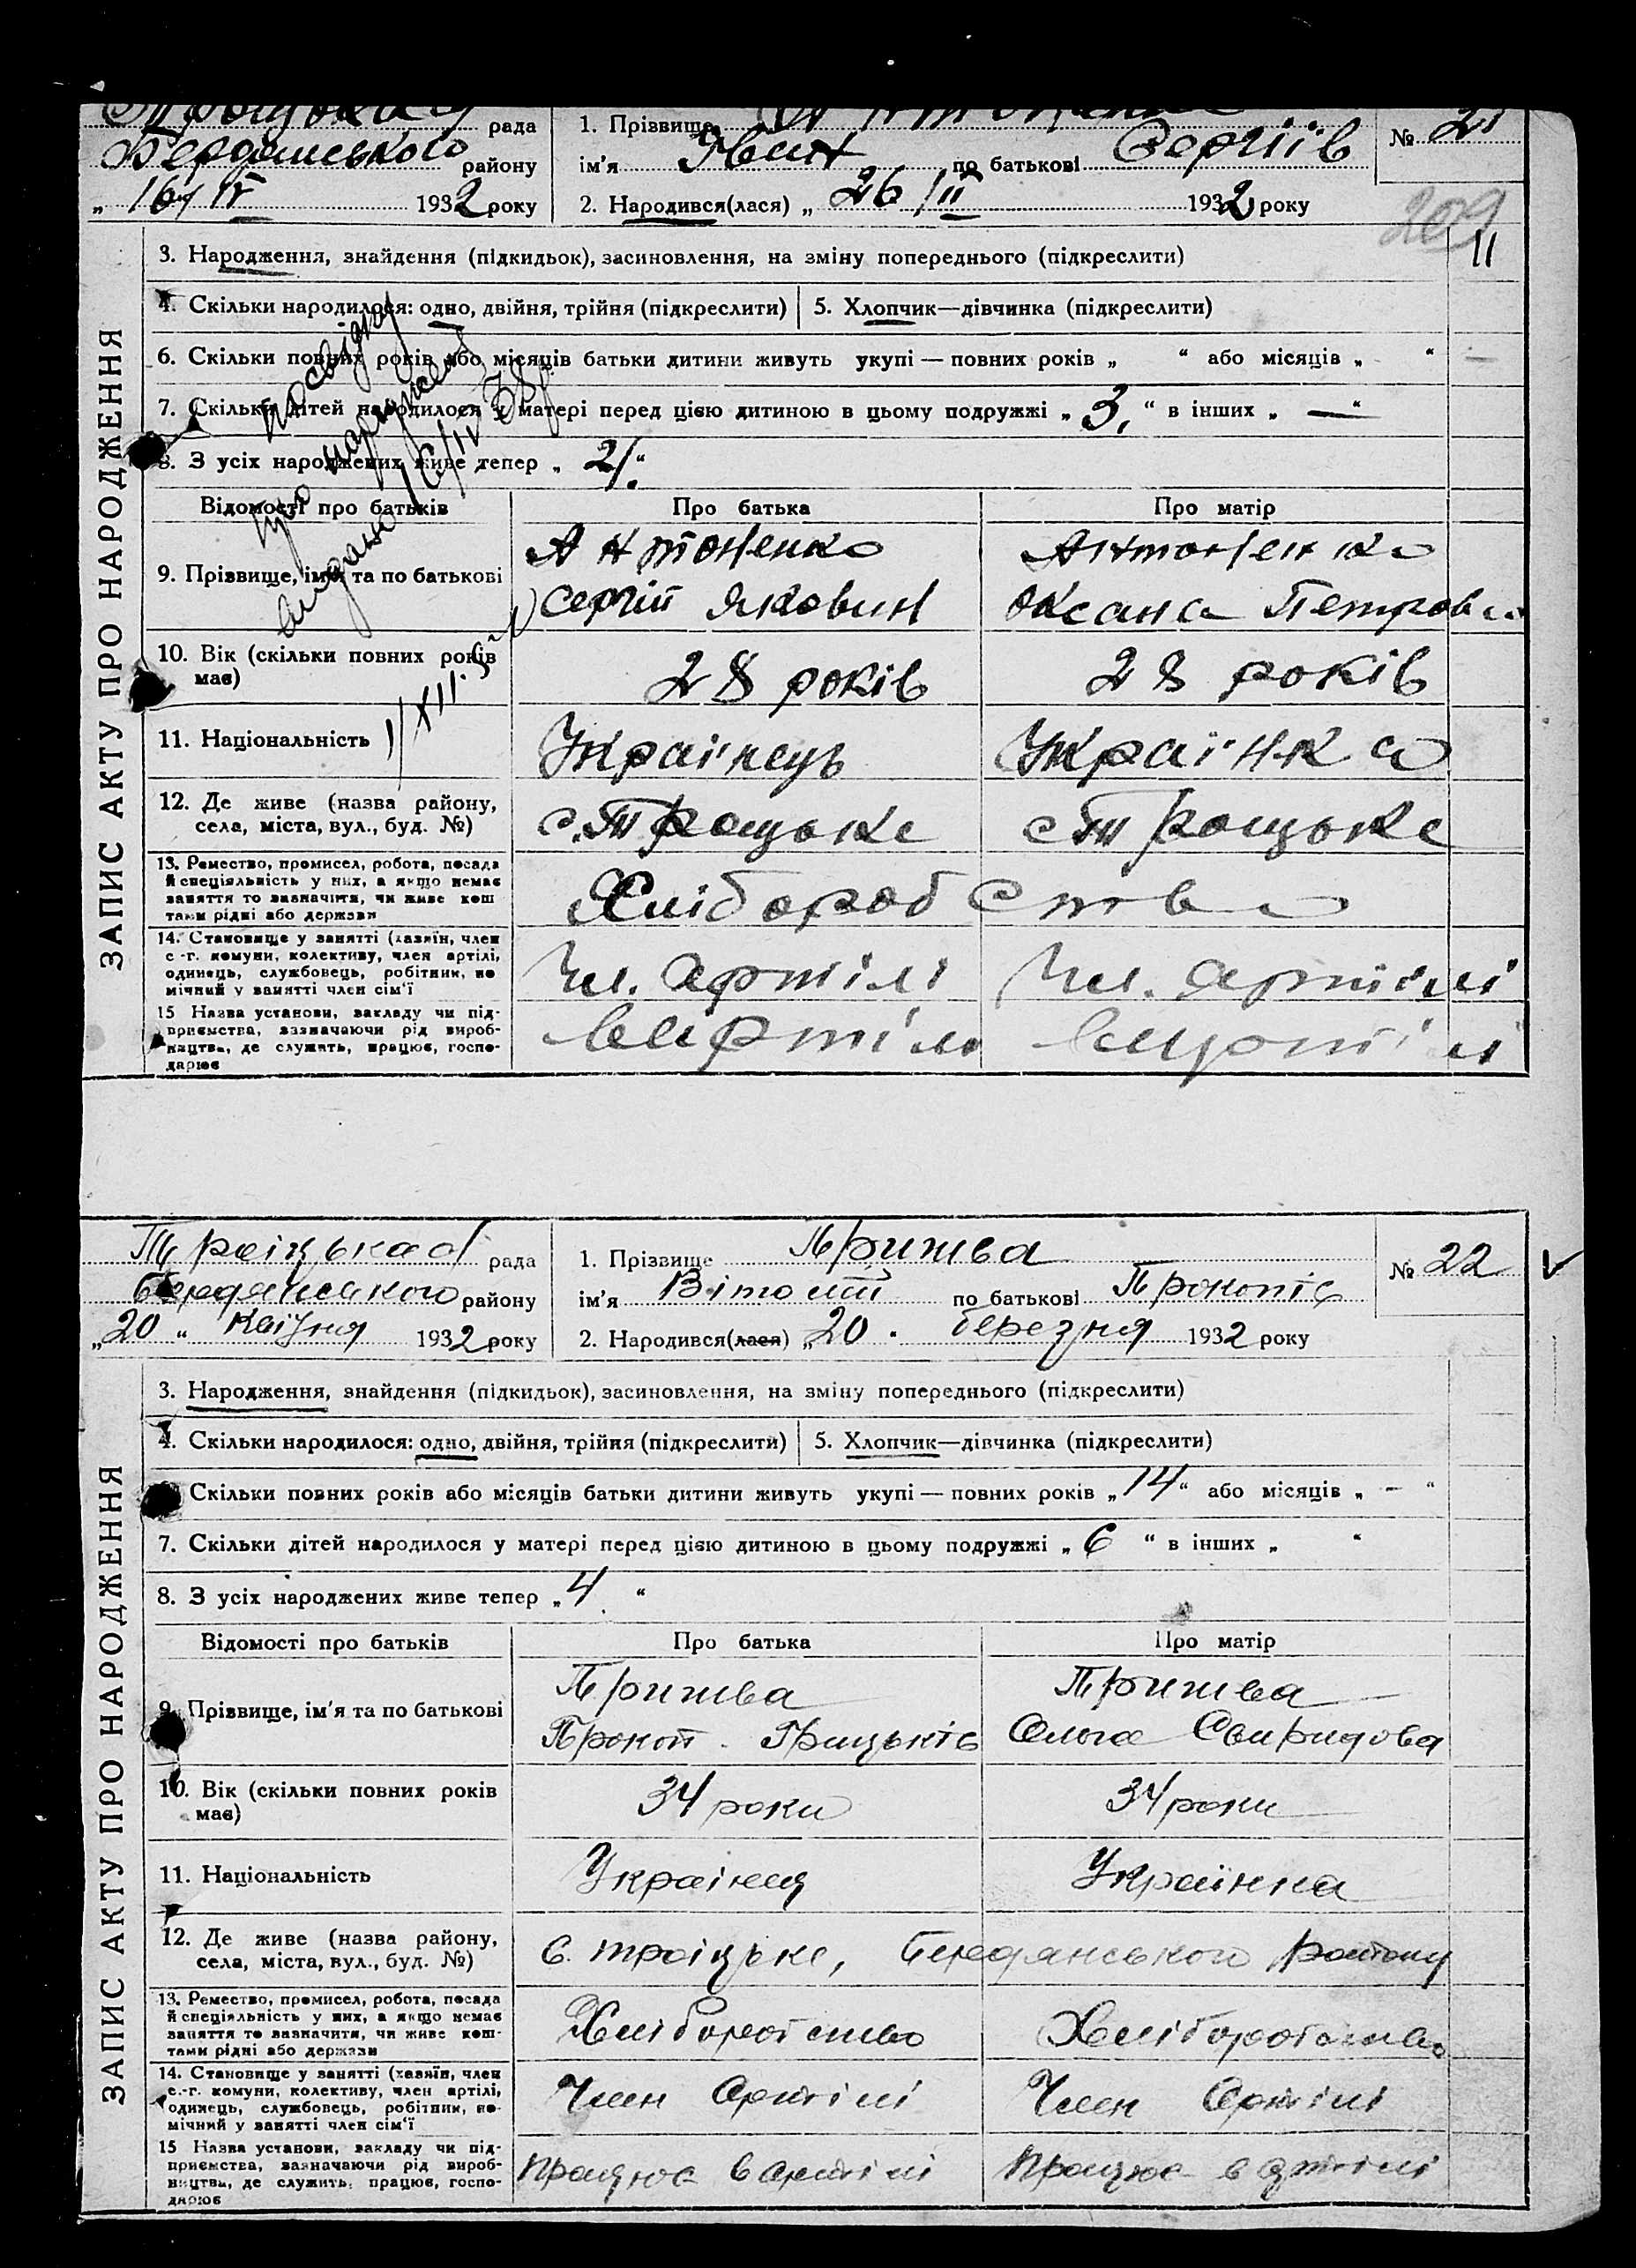 рада
Бердянського району
„ 16/IV 1932 року
1. Прізвище
ім'я Іван по батькові Сергіїв
2. Народився(лася) „ 26/II 1932 року
№ 21
209
11
ЗАПИС АКТУ ПРО НАРОДЖЕННЯ
3. Народження, знайдення (підкидьок), засиновлення, на зміну попереднього (підкреслити)
4. Скільки народилося: одно, двійня, трійня (підкреслити)
5. Хлопчик—дівчинка (підкреслити)
6. Скільки повних років або місяців батьки дитини живуть укупі — повних років „ “ або місяців „ “
7. Скільки дітей народилося у матері перед цією дитиною в цьому подружжі „ 3, “ в інших „ — “
8. З усіх народжених живе тепер „ 2 “
Відомості про батьків
Про батька
Про матір
9. Прізвище, ім'я та по батькові
Антоненко
Сергій Яковин
Антоненко
Оксана Петрова
10. Вік (скільки повних років має)
28 років
28 років
11. Національність
Українець
Українка
12. Де живе (назва району, села, міста, вул., буд. №)
с. Троцьке
с Троцьке
13. Ремество, промисел, робота, посада
й спеціяльність у них, а якщо немає
заняття то визначити, чи живе кош
тами рідні або держави
Хліборобство
14. Становище у занятті (хазяїн, член
с.-г. комуни, колективу, член артілі,
одинець, службовець, робітник, по
мічний у занятті член сім'ї
Чл. артілі
Чл. артілі
15 Назва установи, закладу чи під-
приємства, зазначаючи рід вироб-
ництва, де служить, працює, госпо-
дарює
в артілі
в артілі
посвідку
про народження
видано 16/IV 38р
Троіцька рада
Бердянського району
„20“ Квітня 1932 року
1. Прізвище Прижва
ім'я Віталій по батькові Прокопів
2. Народився(лася) „20. березня 1932 року
№ 22
ЗАПИС АКТУ ПРО НАРОДЖЕННЯ
3. Народження, знайдення (підкидьок), засиновлення, на зміну попереднього (підкреслити)
4. Скільки народилося: одно, двійня, трійня (підкреслити)
5. Хлопчик—дівчинка (підкреслити)
Скільки повних років або місяців батьки дитини живуть укупі — повних років „14“ або місяців „ - “
7. Скільки дітей народилося у матері перед цією дитиною в цьому подружжі „ 6 “ в інших „ “
8. З усіх народжених живе тепер „ 4 “
Відомості про батьків
Про батька
Про матір
9. Прізвище, ім'я та по батькові
Прижва
Прокоп. Грицьків
Прижва
Ольга Свиридова
10. Вік (скільки повних років має)
34 роки
34 роки
11. Національність
Українця
Українка
12. Де живе (назва району, села, міста, вул., буд. №)
с. Троіцьке, Бердянського району
13. Ремество, промисел, робота, посада
й спеціяльність у них, а якщо немає
заняття то визначити, чи живе кош-
тами рідні або держави
Хліборобство
Хліборобство
14. Становище у занятті (хазяїн, член
с.-г. комуни, колективу, член артілі,
одинець, службовець, робітник, по-
мічний у занятті член сім'ї
Член Артілі
Член Артілі
15 Назва установи, закладу чи під-
приємства, зазначаючи рід вироб-
ництва, де служить, працює, госпо-
дарює
працює в артілі
працює в артілі